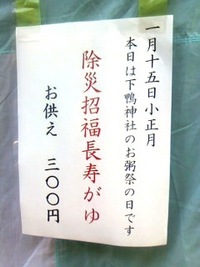 一月十五日小正月
本日は下鴨神社のお粥祭の日です
除災招福長寿がゆ
お供え 三〇〇円